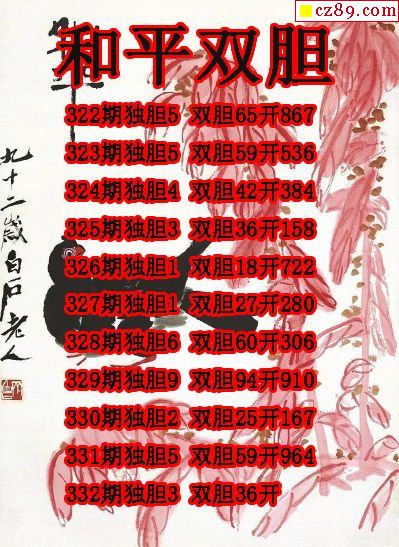 cz89.com
和平双胆
322期独胆5 双胆65开867
323期独胆5 双胆59开536
324期独胆4 双胆42开384
325期独胆3 双胆36开158
326期独胆1 双胆18开722
327期独胆1 双胆27开280
328期独胆6 双胆60开306
329期独胆9 双胆94开910
330期独胆2 双胆25开167
331期独胆5 双胆59开964
332期独胆3 双胆36开
九十二歲白石老人